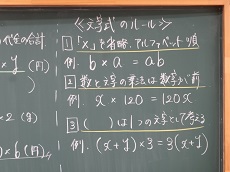 ≪文字式のルール≫
代金の合計
1 「×」を省略、アルファベット順
× y (円)
例. b × a = ab
2 数と文字の乗法は数字が前
例. x × 120 = 120x
× 2 (
3 ( )は1つの文字として考える
例. (x+y)×3 = 3(x+y)
) × 6 (円)